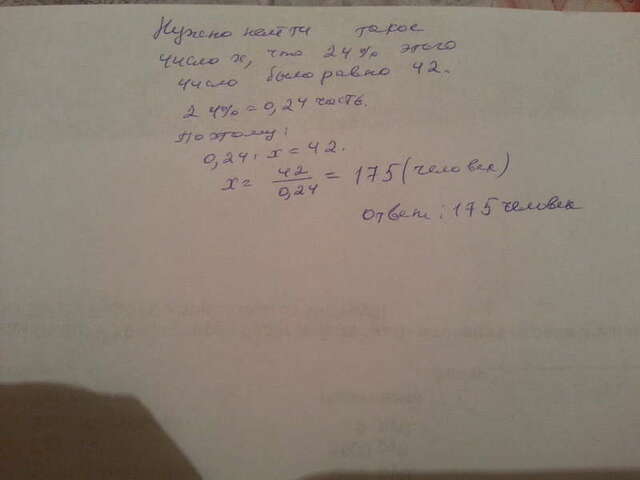 Нужно найти такое
число x, что 24% этого
число было равно 42.
24% = 0,24 часть.
Поэтому:
0,24 · x = 42.
x = 42/0,24 = 175 (человек)
ответ: 175 человек